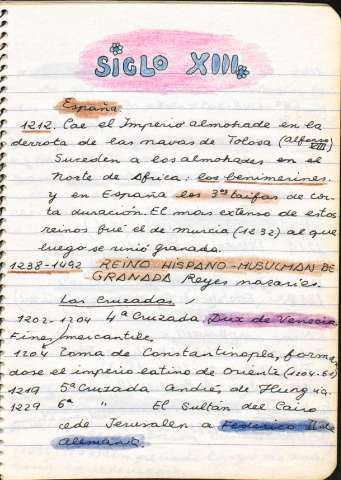 SIGLO XIII
España
1212. Cae el Imperio almohade en la
derrota de las navas de Tolosa (Alfonso VIII)
Suceden a los almohades en el
Norte de Africa: los benimerines
y en España las 3as taifas de cor-
ta duración. El mas extenso de estos
reinos fué el de murcia (1232) al que
luego se unió granada.
1238-1492 REINO HISPANO-MUSULMAN DE
GRANADA Reyes nazaries.
Las Cruzadas
1202-1204 4ª Cruzada Dux de Venecia
Fines mercantiles
1204 Toma de Constantinopla, forman
dose el imperio latino de Oriente (1204-61)
1219 5ª Cruzada Andres de Hungria.
1229 6ª " El Sultán del Cairo
cede Jerusalen a Federico II de
Alemania.